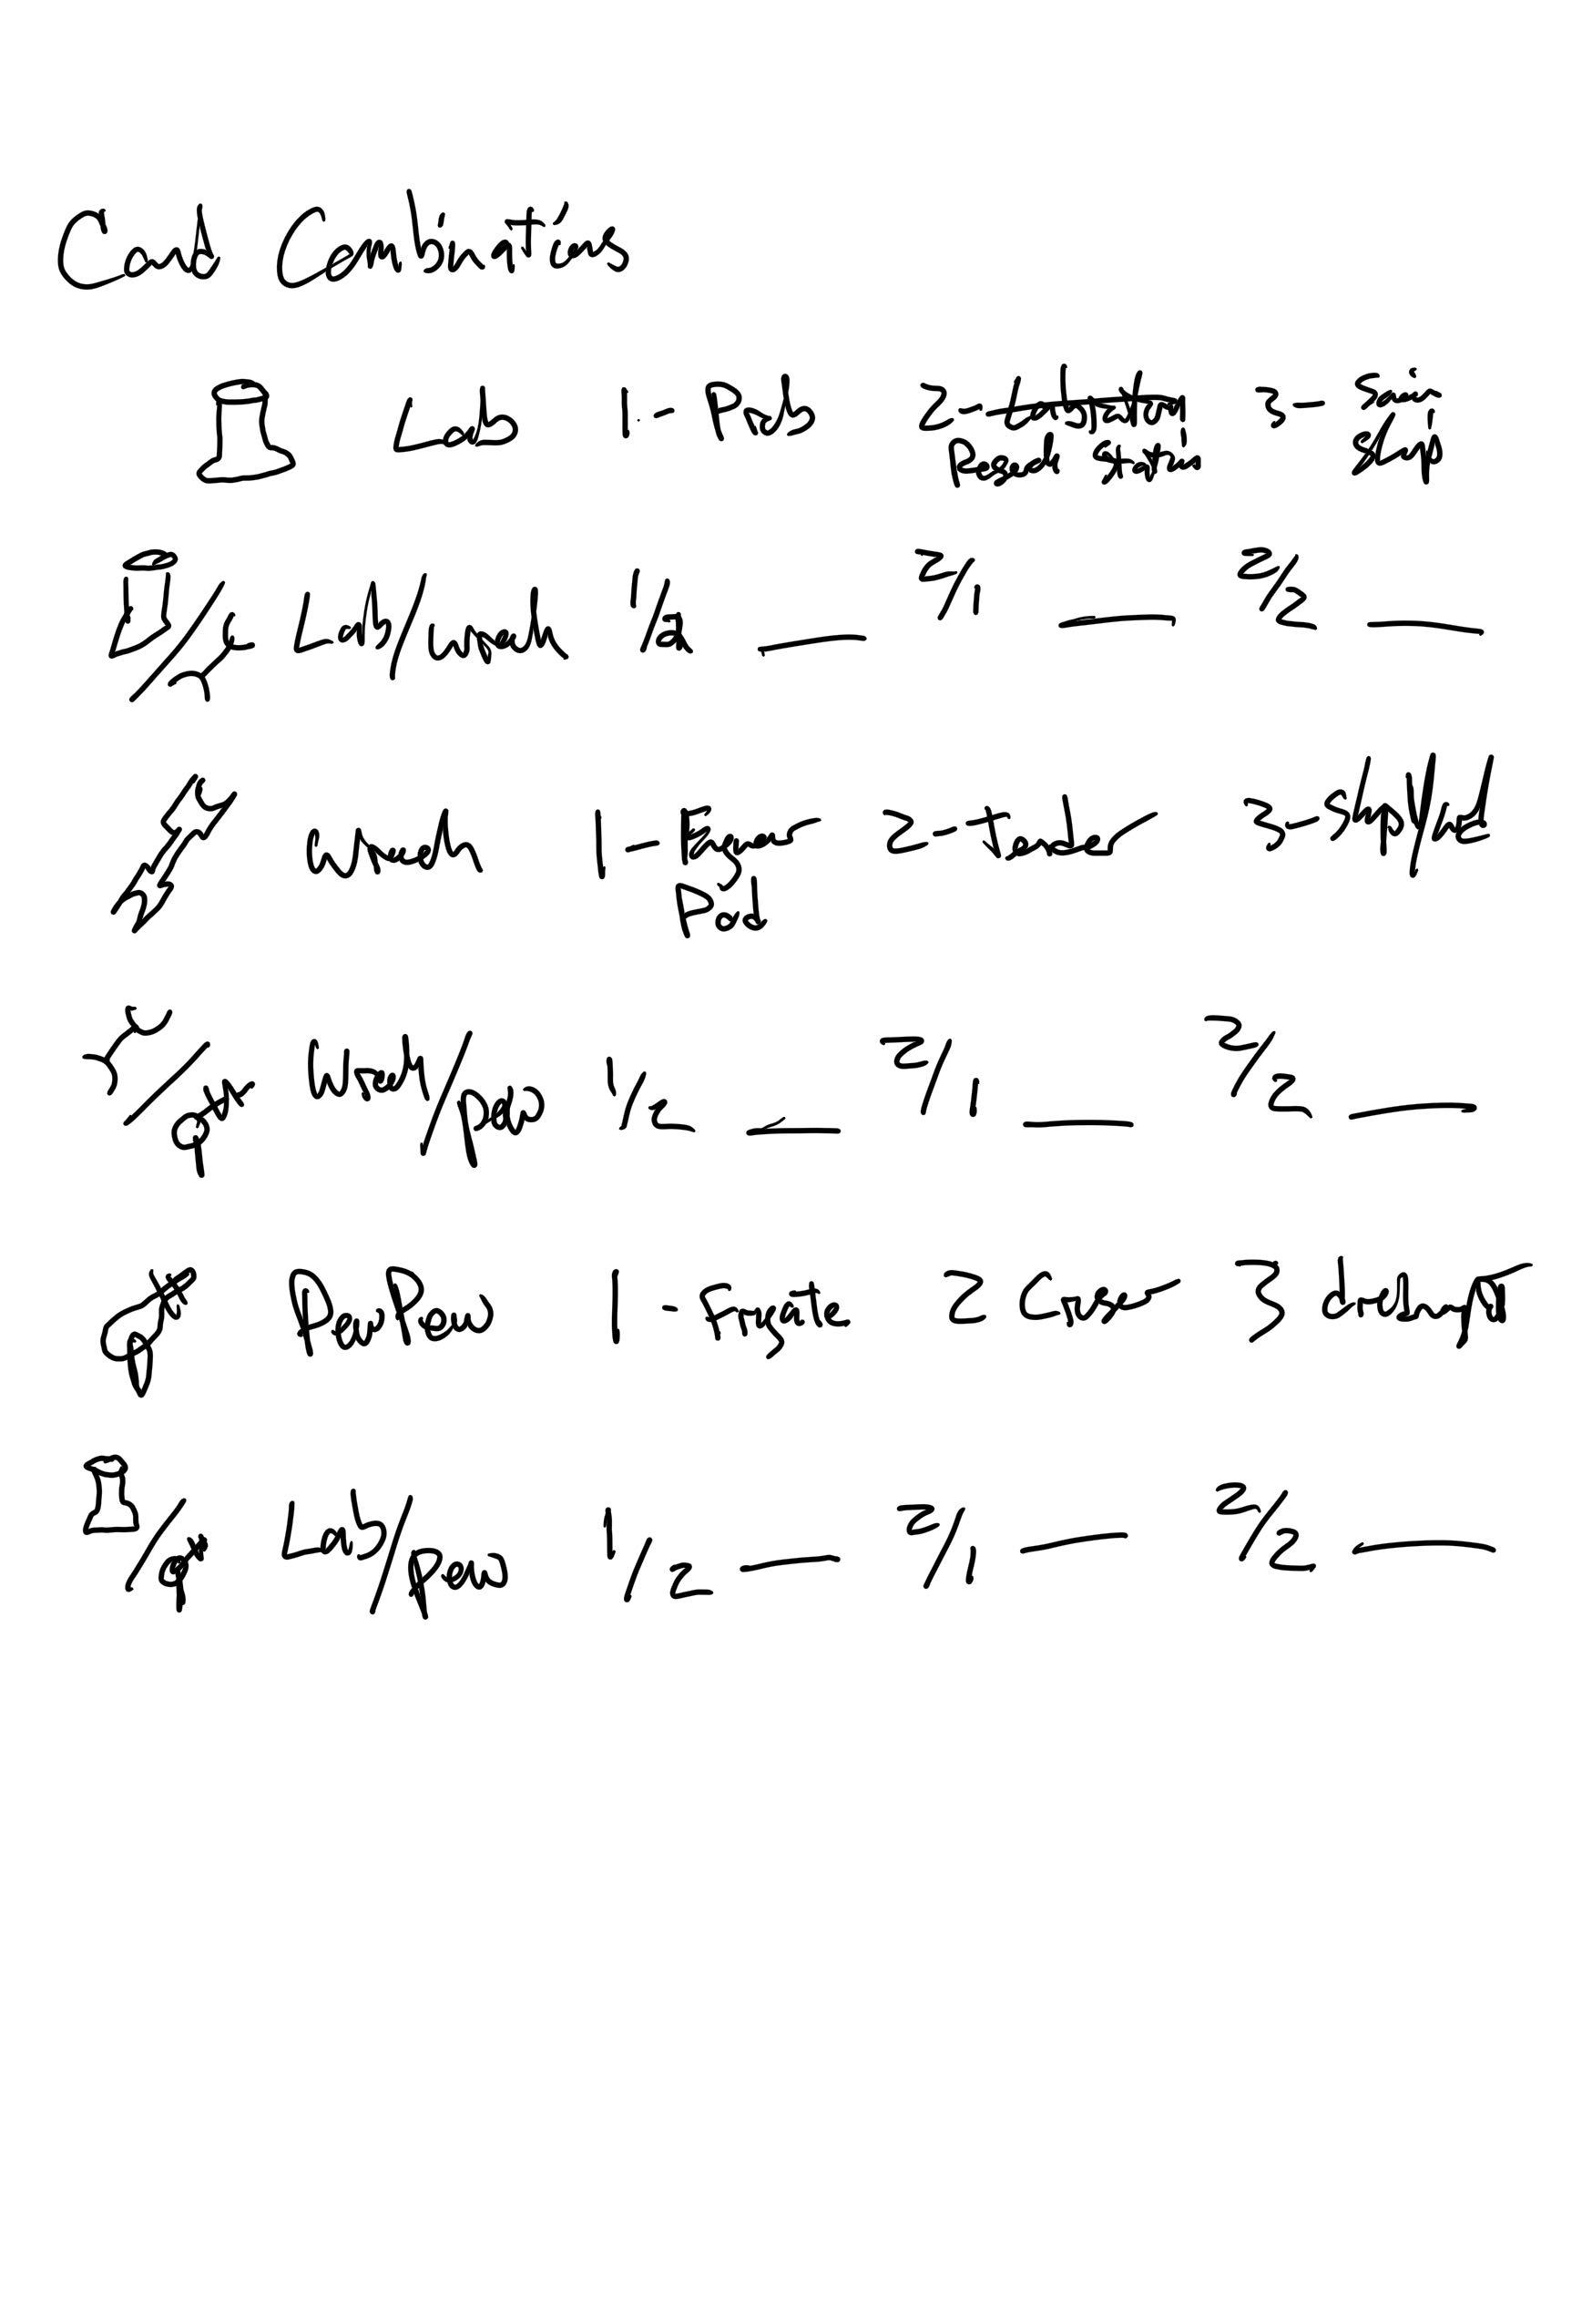 Card Combinations
Lab 1 - Prob 2 - Research Station 3 - Sci Ship
Lab/wrench 1/2 2/1 2/2
Wrench 1 - Engineer Pod 2 - tender 3 - shipyard
Wrench/pew 1/2 2/1 2/2
PewPew 1 - frigate 2 Cruiser 3
Lab/pew 1/2 2/1 2/2